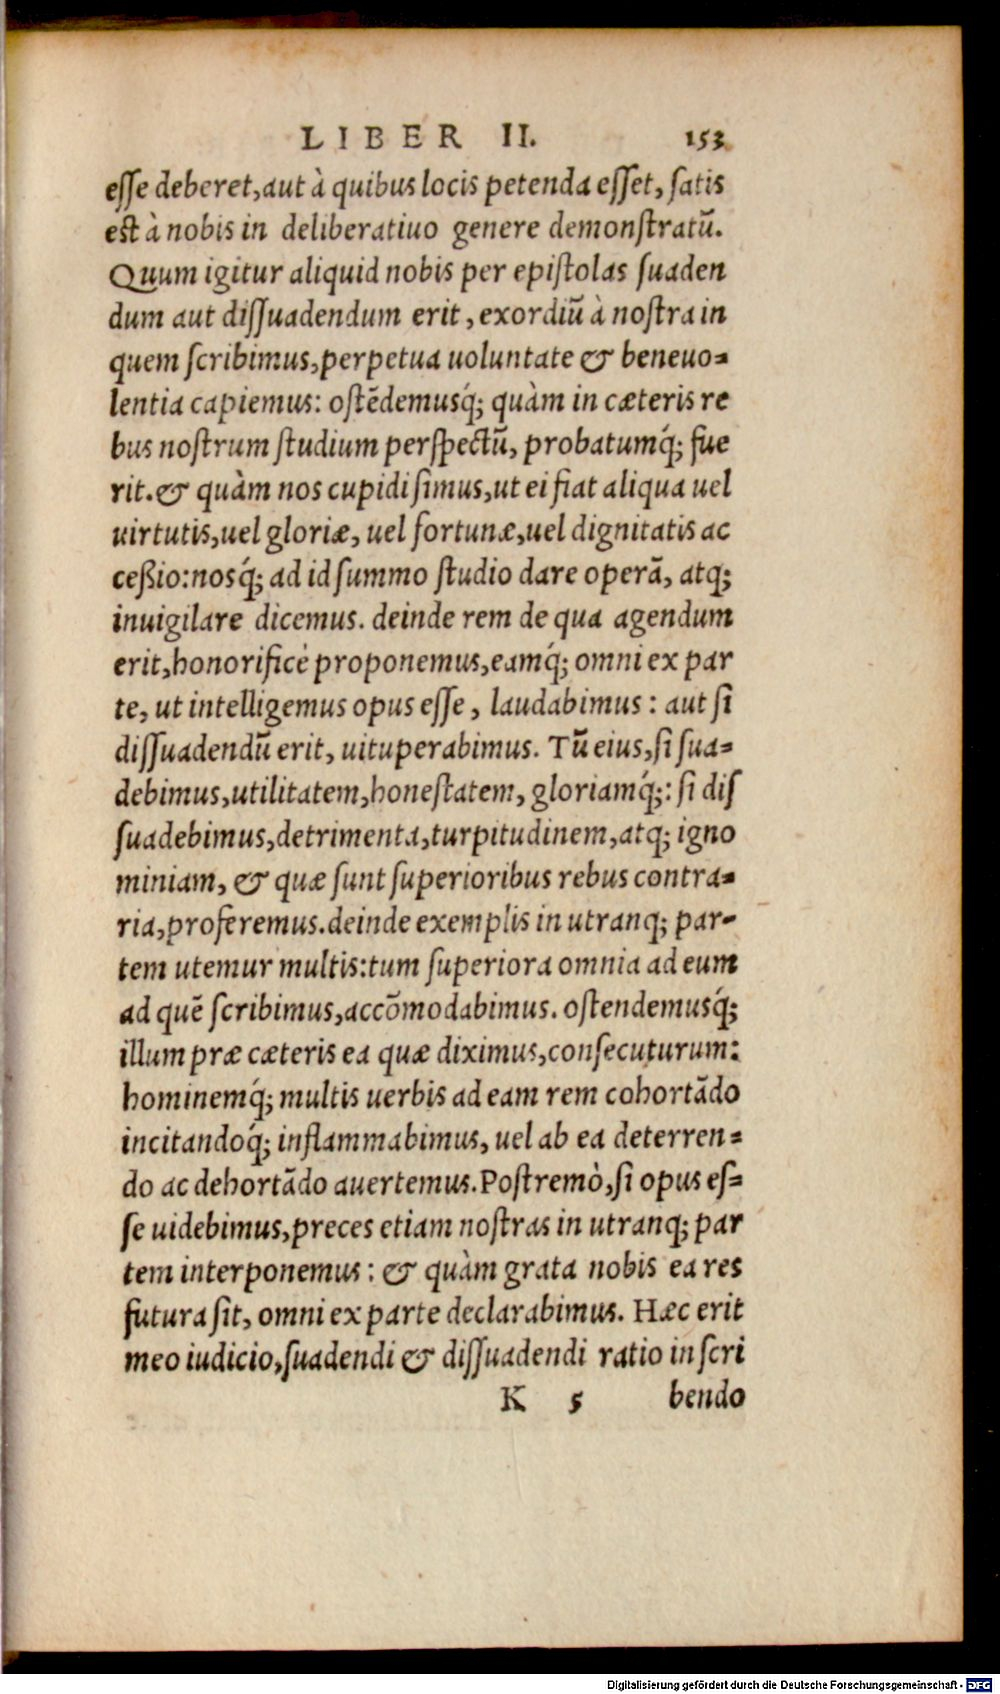 LIBER II. 153
esse deberet,aut à quibus locis petenda esset, satis
est à nobis in deliberatiuo genere demonstratũ.
Quum igitur aliquid nobis per epistolas suaden
dum aut dissuadendum erit, exordiũ à nostra in
quem scribimus,perpetua uoluntate & beneuo=
lentia capiemus: ostẽdemusq́; quàm in cæteris re
bus nostrum studium perspectũ, probatumq́; fue
rit.& quàm nos cupidi simus,ut ei fiat aliqua uel
uirtutis,uel gloriæ, uel fortunæ,uel dignitatis ac
ceßio:nosq́; ad id summo studio dare operã, atq;
inuigilare dicemus. deinde rem de qua agendum
erit,honorificè proponemus,eamq́; omni ex par
te, ut intelligemus opus esse, laudabimus: aut si
dissuadendũ erit, uituperabimus. Tũ eius,si sua=
debimus,utilitatem,honestatem, gloriamq́;: si dis
suadebimus,detrimenta,turpitudinem,atq; igno
miniam, & quæ sunt superioribus rebus contra=
ria,proferemus.deinde exemplis in utranq; par=
tem utemur multis:tum superiora omnia ad eum
ad quẽ scribimus,accõmodabimus. ostendemusq́;
illum præ cæteris ea quæ diximus,consecuturum:
hominemq́; multis uerbis ad eam rem cohortãdo
incitandoq́; inflammabimus, uel ab ea deterren=
do ac dehortãdo auertemus.Postremò,si opus es=
se uidebimus,preces etiam nostras in utranq; par
tem interponemus: & quàm grata nobis ea res
futura sit, omni ex parte declarabimus. Hæc erit
meo iudicio,suadendi & dissuadendi ratio in scri
K 5 bendo
Digitalisierung gefördert durch die Deutsche Forschungsgemeinschaft - DFG